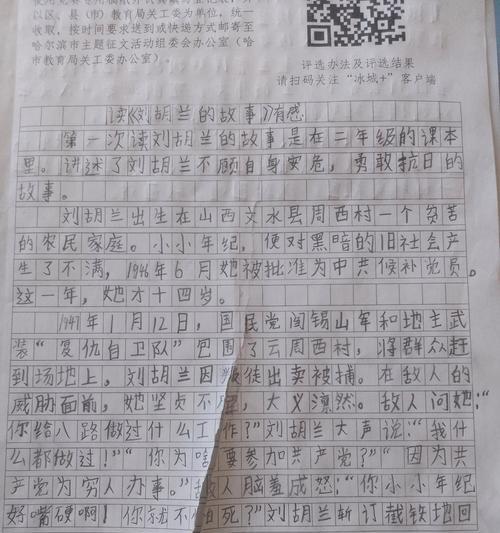 以区、县（市）教育局关工委为单位，统一
收取，按时间要求送到或快递方式邮寄至
哈尔滨市主题征文活动组委会办公室（哈
市教育局关工委办公室）。
评选办法及评选结果
请扫码关注“冰城+”客户端
读《刘胡兰的故事》有感
第一次读刘胡兰的故事是在二年级的课本
里。讲述了刘胡兰不顾自身安危，勇敢抗日的
故事。
刘胡兰出生在山西文水县周西村一个贫苦
的农民家庭。小小年纪，便对黑暗的旧社会产
生了不满，1946年6月她被批准为中共候补党员。
这一年，她才十四岁。
1947年1月12日，国民党阎锡山军和地主武
装“复仇自卫队”包围了云周西村，将群众赶
到场地上。刘胡兰因叛徒出卖被捕。在敌人的
威胁面前，她坚贞不屈，大义凛然。敌人问她：“
你给八路做过什么工作？”刘胡兰大声说：“我什
么都做过！”“你为啥要参加共产党？”“因为共
产党为穷人办事。”敌人脑羞成怒：“你小小年纪
好嘴硬啊！你就不怕死？”刘胡兰斩订截铁地回